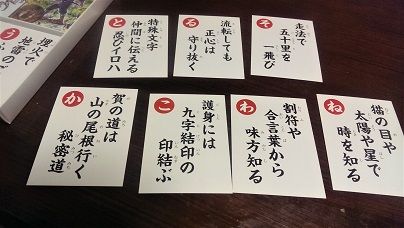 そ
走法で
五十里を
一飛び
る
流転しても
正心は
守り抜く
と
特殊文字
仲間に伝える
忍びイロハ
う
埋火で
地雷の
ね
猫の目や
太陽や星で
時を知る
わ
割符や
合言葉から
味方知る
こ
護身には
九字結印の
印結ぶ
か
賀の道は
山の尾根行く
秘密道